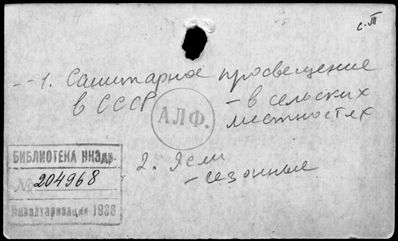 с. III
-- 1. Санитарное просвещение
в СССР – в сельских
местностях
АЛФ.
2. Ясли
– сезонные
БИБЛИОТЕКА
№ 204968
Инвентаризация 1938